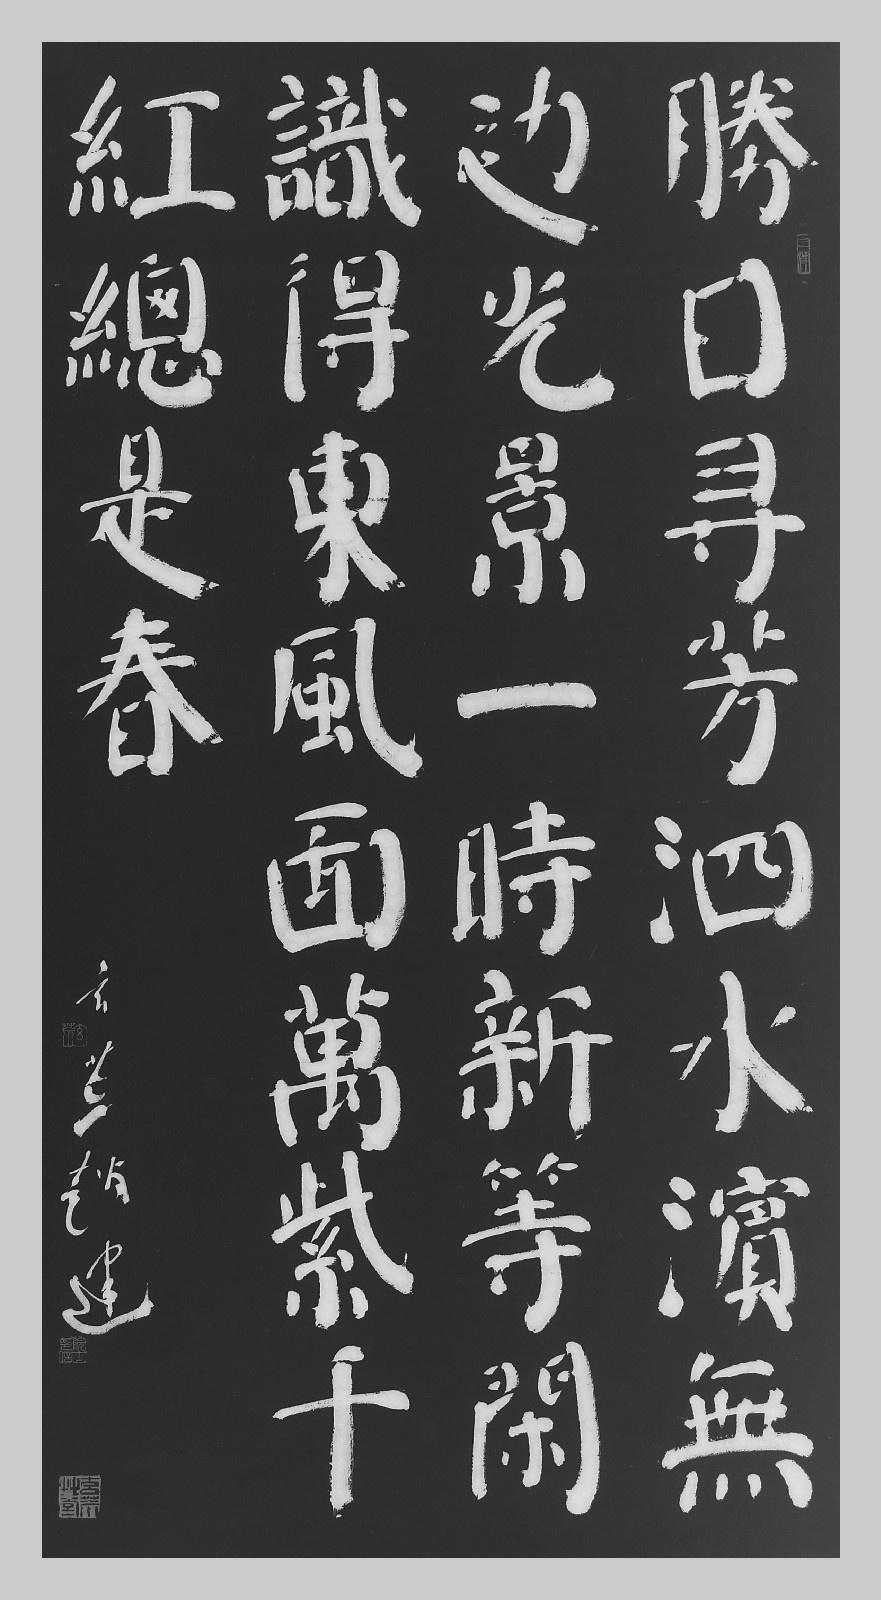 勝日寻芳泗水濱無
边光景一時新等閑
識得東風面萬紫千
紅總是春
趙建